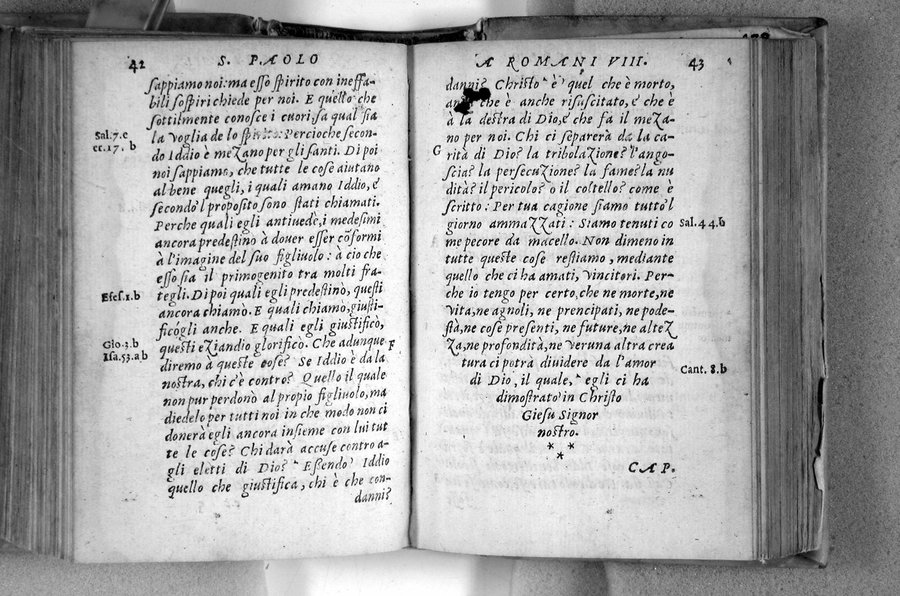 42 S. PAOLO
sappiamo noi: ma esso spirito con ineffa-
bili sospiri chiede per noi. E quello che
sottilmente conosce i cuori, sa qual sia
Sal. 7. c
la voglia de lo spirito: Percioche secon-
er. 17. b
do Iddio è mezano per gli santi. Di poi
noi sappiamo, che tutte le cose aiutano
al bene quegli, i quali amano Iddio, e'
secondo'l proposito sono stati chiamati.
Perche quali egli antiuede, i medesimi
ancora predestinò à douer esser cōformi
à l'imagine del suo figliuolo: à cio che
esso sia il primogenito tra molti fra-
Efes. 1. b
tegli. Di poi quali egli predestinò, questi
ancora chiamò. E quali chiamò, giusti-
ficógli anche. E quali egli giustificò,
Gio. 3. b
questi eziandio glorificò. Che adunque
F
Isa. 53. a b
diremo à queste cose? Se Iddio è da la
nostra, chi c'è contro? Quello il quale
non pur perdonò al propio figliuolo, ma
diedelo per tutti noi in che modo non ci
donerà egli ancora insieme con lui tut
te le cose? Chi darà accuse contro a-
gli eletti di Dio? Essendo Iddio
quello che giustifica, chi è che con-
danni?
A ROMANI VIII. 43
danni? Christo è quel che è morto,
che è anche risuscitato, e' che è
à la destra di Dio, e' che fa il meza-
no per noi. Chi ci separerà da la ca-
G
rità di Dio? la tribolazione? l'ango-
scia? la persecuzione? la fame? la nu
dità? il pericolo? o il coltello? come è
scritto: Per tua cagione siamo tutto'l
giorno ammazzati: Siamo tenuti co
Sal. 44. b
me pecore da macello. Non dimeno in
tutte queste cose restiamo, mediante
quello che ci ha amati, vincitori. Per-
che io tengo per certo, che ne morte, ne
vita, ne agnoli, ne prencipati, ne pode-
stà, ne cose presenti, ne future, ne altez
za, ne profondità, ne veruna altra crea
tura ci potrà diuidere da l'amor
Cant. 8. b
di Dio, il quale, egli ci ha
dimostrato in Christo
Giesu Signor
nostro.
* *
*
CAP.